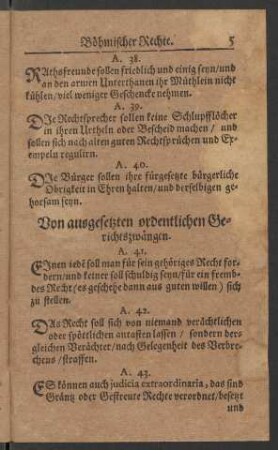 Böhmischer Rechte. 5
A. 38.
RAthsfreunde sollen friedlich und einig seyn/und
an den armen Unterthanen ihr Müthlein nicht
kühlen/viel weniger Geschencke nehmen.
A. 39.
DIe Rechtsprecher sollen keine Schlupfflöcher
in ihren Urtheln oder Bescheid machen/ und
sollen sich nach alten guten Rechtsprüchen und Ex-
empeln regulirn.
A. 40.
DIe Bürger sollen ihre fürgesetzte bürgerliche
Obrigkeit in Ehren halten/und derselbigen ge-
horsam seyn.
Von ausgesetzten ordentlichen Ge-
richtszwängen.
A. 41.
EInen iede soll man für sein gehöriges Recht for-
dern/und keiner soll schuldig seyn/für ein fremb-
des Recht/es geschehe dann aus guten willen) sich
zu stellen.
A. 42.
DAs Recht soll sich von niemand verächtlichen
oder spöttlichen antasten lassen/ sondern der-
gleichen Verächter/nach Gelegenheit des Verbre-
chens/straffen.
A. 43.
ES können auch judicia extraordinaria, das sind
Gräntz oder Gestreute Rechte verordnet/besetzt
und